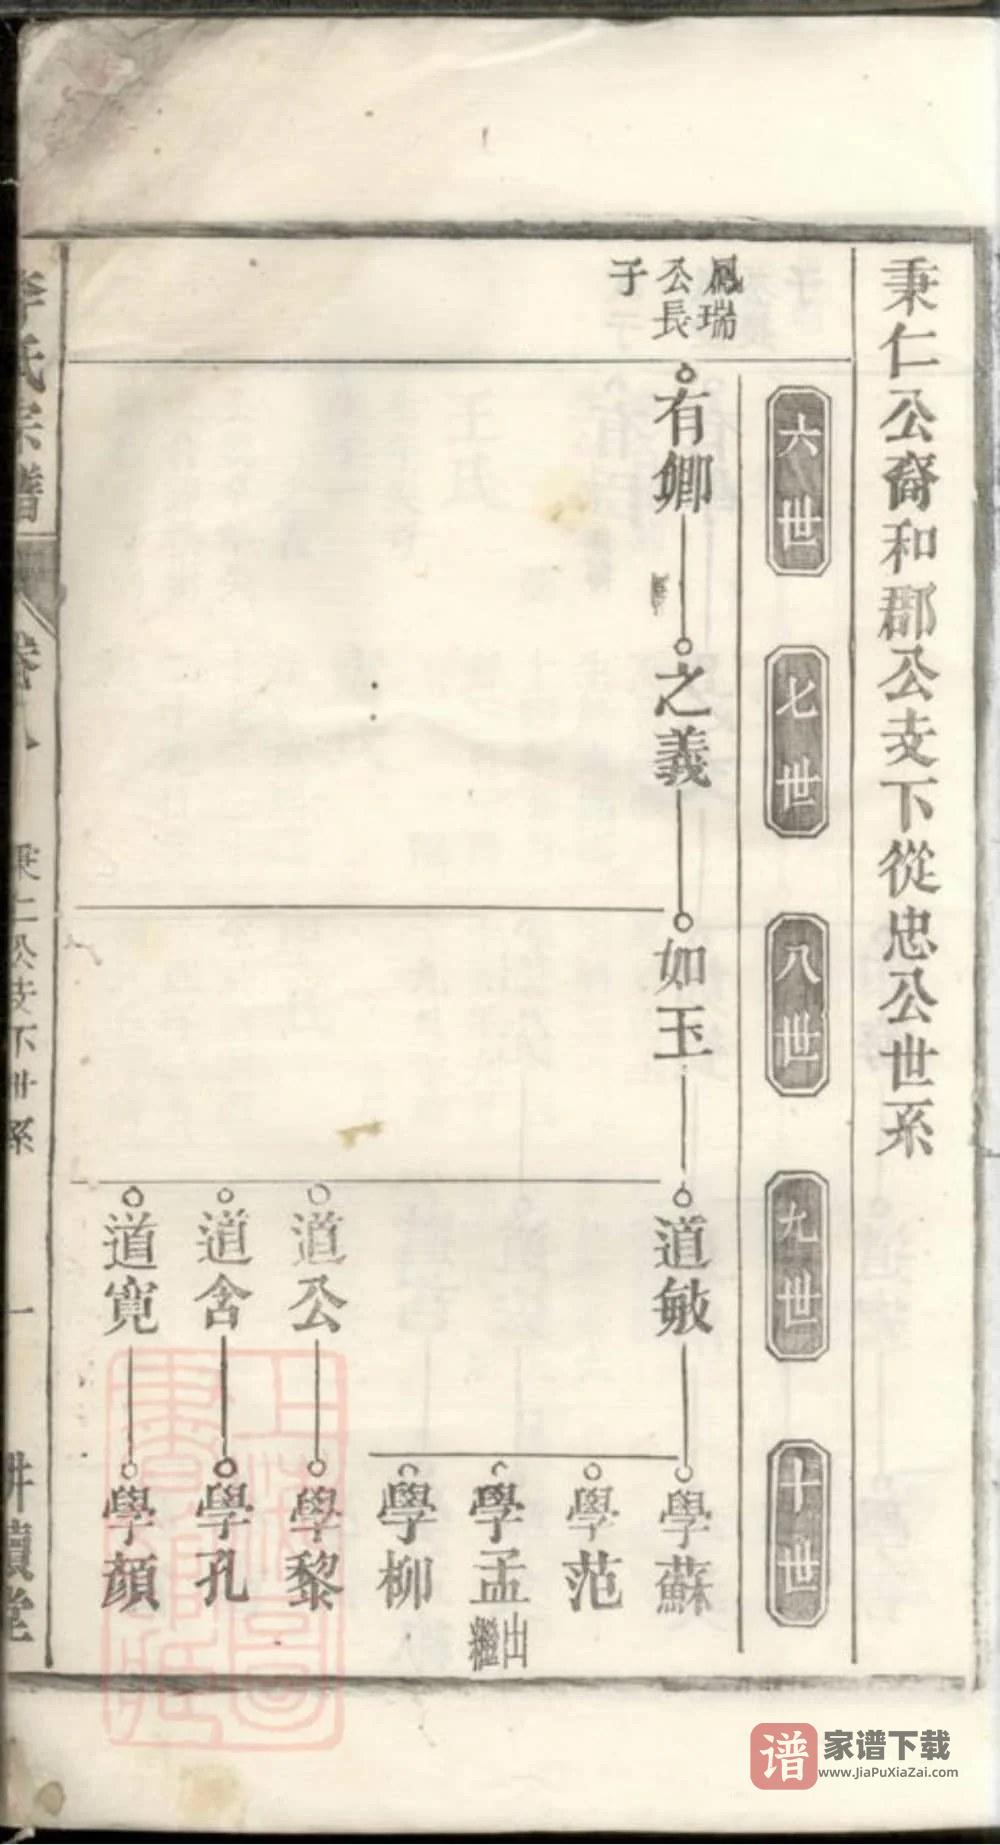 秉仁公裔和郡公支下從忠公世系
六世
七世
八世
九世
十世
鳳瑞
公長
子
有卿
之義
如玉
道敏
學蘇
學范
學孟
出繼
學柳
道公
學黎
道含
學孔
道寬
學顏
李氏宗譜
卷八
秉仁公支下世系
一
家谱下载
www.JiaPuXiaZai.com